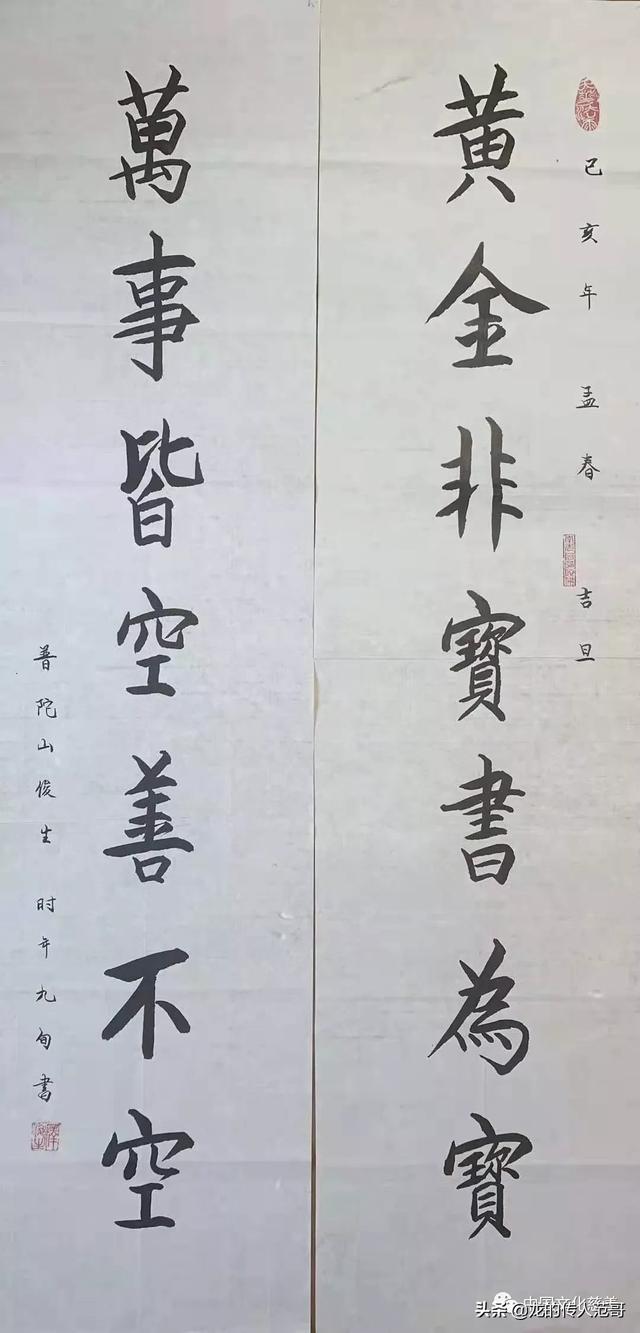 己亥年孟春 吉旦
黄金非寶書為寶
萬事皆空善不空
普陀山俊生 时年九旬書
头条 @龙的传人范哥
中国文化慈善